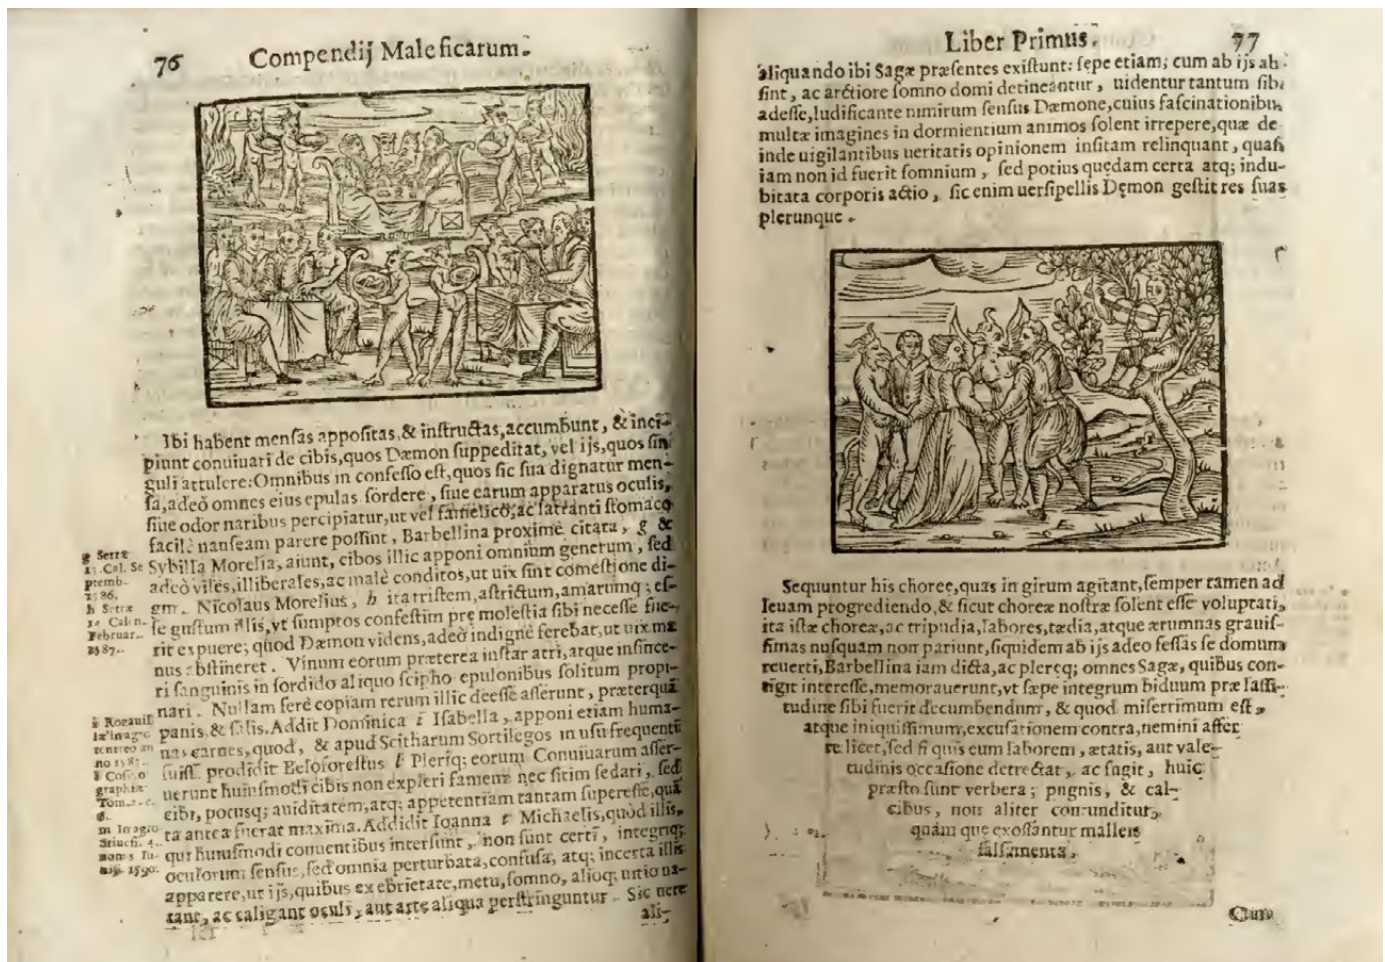 76 Compendij Maleficarum.
Ibi habent mensas appositas, & instructas, accumbunt, & inci-
piunt conuiuari de cibis, quos Dæmon suppeditat, vel ijs, quos sin
guli attulere: Omnibus in confesso est, quos sic sua dignatur men-
sa, adeò omnes eius epulas sordere, siue earum apparatus oculis,
siue odor naribus percipiatur, ut vel famelico, ac latranti stomaco
facilè nauseam parere possint, Barbellina proximè citata, g &
Sybilla Morelia, aiunt, cibos illic apponi omnium generum, sed
adeò viles, illiberales, ac malè conditos, ut uix sint comestione di-
gni. Nicolaus Morelius, h ita tristem, astrictum, amarumq; es-
se gustum illis, vt sumptos confestim prę molestia sibi necesse fue-
rit expuere; quod Dæmon videns, adeò indignè ferebat, ut uix ma
nus abstineret. Vinum eorum præterea instar atri, atque insince-
ri sanguinis in sordido aliquo scipho epulonibus solitum propi-
nari. Nullam ferè copiam rerum illic deesse asserunt, præterquā
panis, & salis. Addit Dominica i Isabella, apponi etiam huma-
nas carnes, quod, & apud Scitharum Sortilegos in usu frequenti
fuisse prodidit Beloforestus l Plerisq; eorum Conuiuarum asser-
uerunt huiusmodi cibis non expleri famem nec sitim sedari, sed
cibi, potusq; auiditatem, atq; appetentiam tantam superesse, quā
ta antea fuerat maxima. Addidit Ioanna Michaelis, quòd illis,
qui huiusmodi conuentibus intersunt, non sunt certi, integriq;
oculorum sensus, sed omnia perturbata, confusa, atq; incerta illis
apparere, ut ijs, quibus ex ebrietate, metu, somno, alioq; uitio na-
tant, ac caligant oculi, aut arte aliqua perstringuntur. Sic uere
ali-
g Setræ
Cal. Se
ptemb.
1586.
h Setræ
14 Calen.
Februar.
1587.
no 1587.
graphiæ
Tom.
m In agro
1590.
Liber Primus. 77
aliquando ibi Sagæ præsentes existunt: sepe etiam; cum ab ijs ab
sint, ac arctiore somno domi detineantur, uidentur tantum sibi
adesse, ludificante nimirum sensus Dæmone, cuius fascinationibus
multæ imagines in dormientium animos solent irrepere, quæ de
inde uigilantibus ueritatis opinionem insitam relinquant, quasi
iam non id fuerit somnium, sed potius quędam certa atq; indu-
bitata corporis actio, sic enim uersipellis Dęmon gestit res suas
plerunque.
Sequuntur his choreę, quas in girum agitant, semper tamen ad
leuam progrediendo, & sicut choreæ nostræ solent esse voluptati,
ita istæ choreæ, ac tripudia, labores, tædia, atque ærumnas grauis-
simas nusquam non pariunt, siquidem ab ijs adeo fessas se domum
reuerti, Barbellina iam dicta, ac pleręq; omnes Sagæ, quibus con-
tigit interesse, memorauerunt, vt sæpe integrum biduum præ lassi-
tudine sibi fuerit decumbendum, & quod miserrimum est,
atque iniquissimum, excusationem contra, nemini affer
re licet, sed si quis eum laborem, ætatis, aut vale-
tudinis occasione detrectat, ac fugit, huic
præsto sunt verbera; pugnis, & cal-
cibus, non aliter contunditur,
quàm que exossantur malleis
salsamenta.
Cum